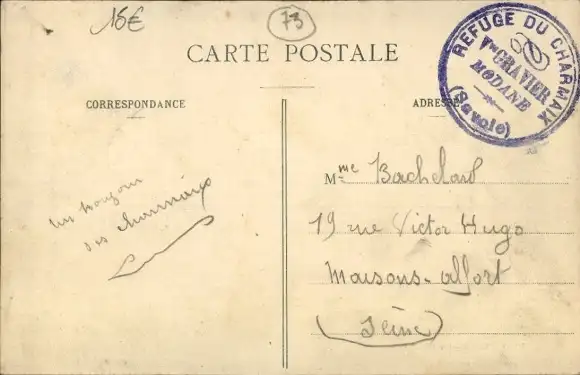 15€
73
CARTE POSTALE
REFUGE DU CHARMAIX
Vve GRAVIER
MODANE
(Savoie)
CORRESPONDANCE
ADRESSE
un bonjour
des
Mme Bachelard
19 rue Victor Hugo
Maisons-alfort
(Seine)